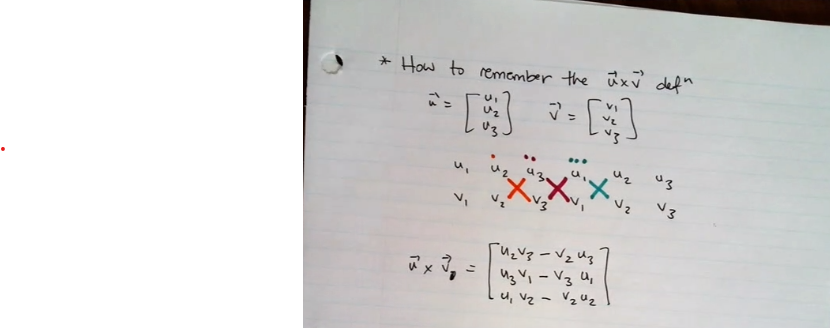 * How to remember the u⃗×v⃗ defⁿ
u⃗ = [u₁ u₂ u₃] v⃗ = [v₁ v₂ v₃]
u₁ u₂ u₃ u₁ u₂ u₃
v₁ v₂ v₃ v₁ v₂ v₃
u⃗ × v⃗ = [u₂v₃ − v₂u₃
u₃v₁ − v₃u₁
u₁v₂ − v₂u₂]